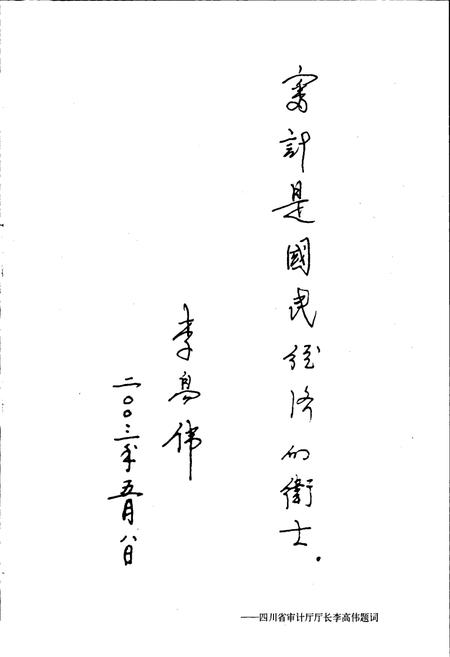 審計是國民经济的衛士.
李高伟
二〇〇三年五月八日
——四川省审计厅厅长李高伟题词